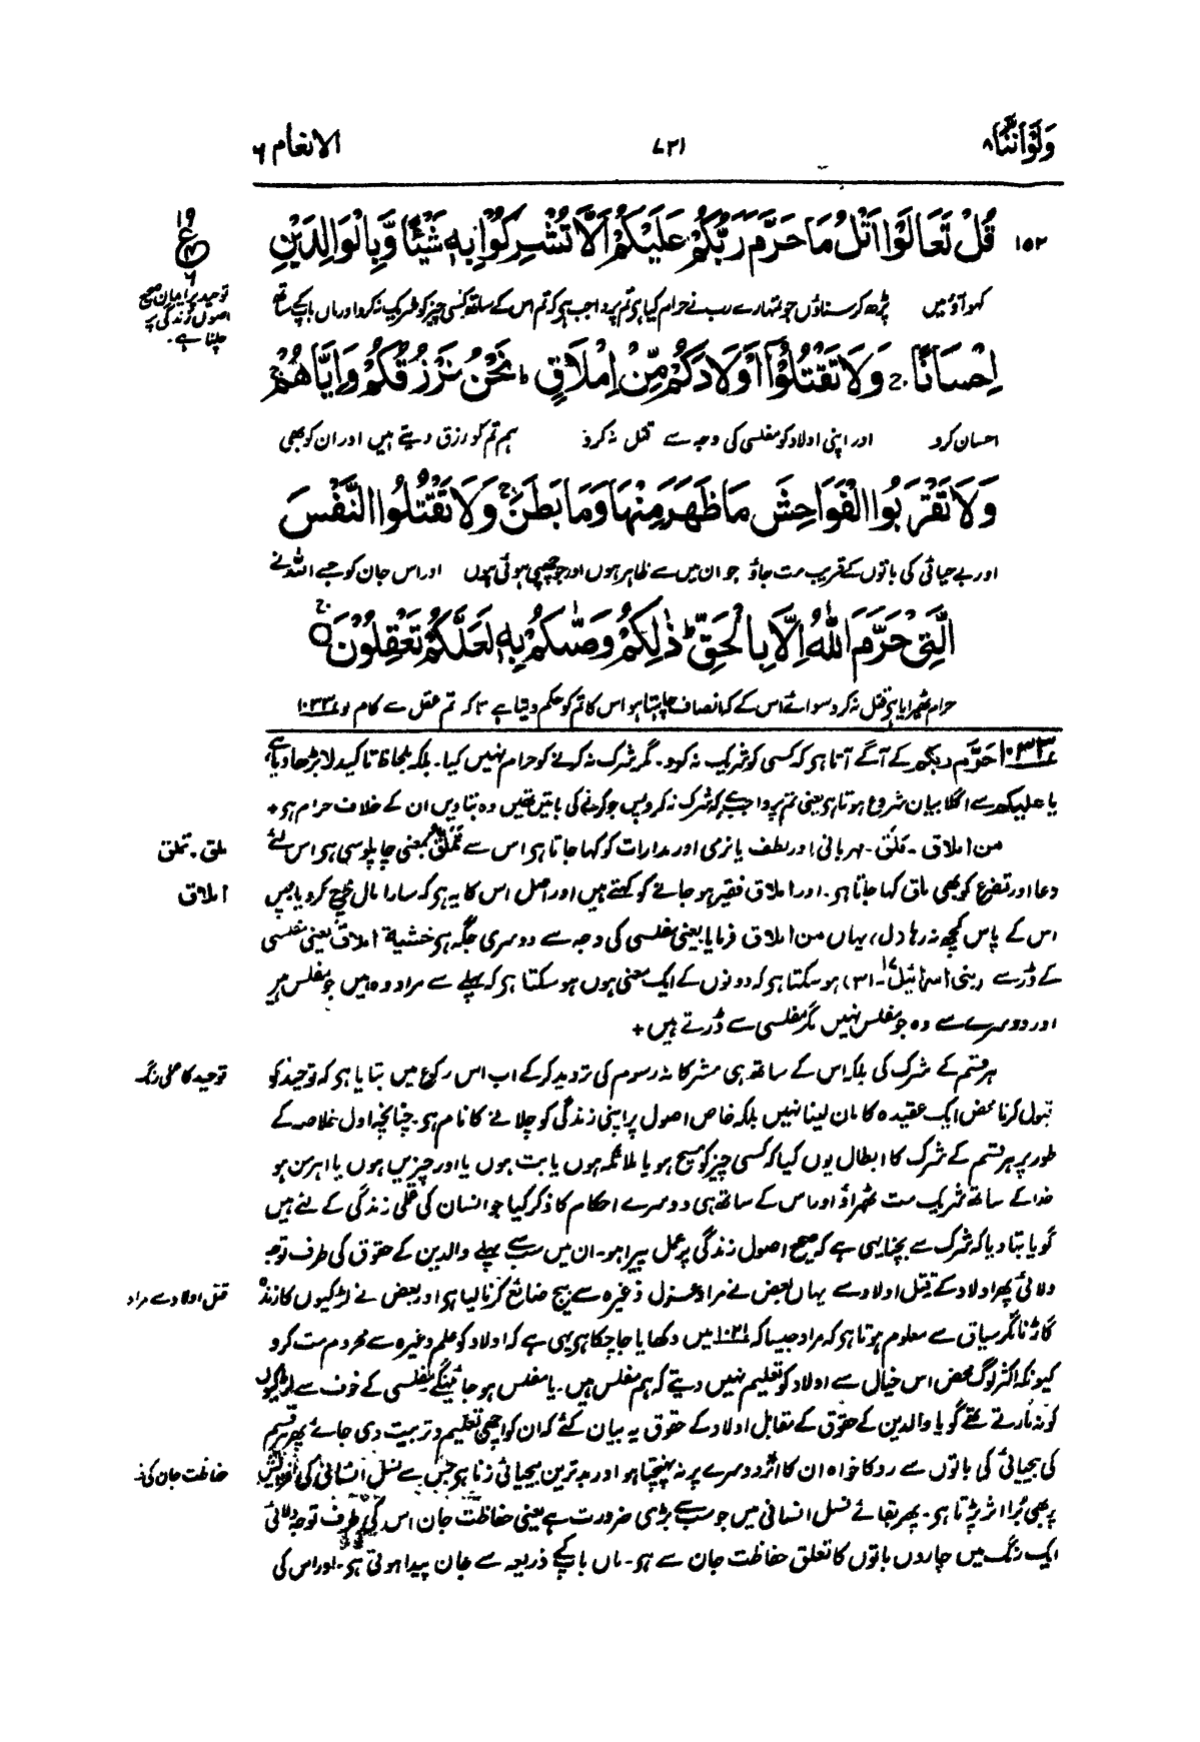 ولو اننا ۸
۷۲۱
الانعام ۶
۱۵۲ قُلْ تَعَالَوْا اَتْلُ مَا حَرَّمَ رَبُّكُمْ عَلَيْكُمْ اَلَّا تُشْرِكُوْا بِهٖ شَيْئًا وَّبِالْوَالِدَيْنِ
۱۹
ع
۶
توحید پر ایمان صحیح
اصول زندگی پر
چلنا ہے۔
کہو آؤ میں پڑھ کر سناؤں جو تمہارے رب نے حرام کیا ہو تم پر واجب ہے کہ تم اس کے ساتھ کسی چیز کو شریک نہ کرو اور ماں باپ کے ساتھ
اِحْسَانًا ۚ وَلَا تَقْتُلُوْٓا اَوْلَادَكُمْ مِّنْ اِمْلَاقٍ ؕ نَحْنُ نَرْزُقُكُمْ وَاِيَّاهُمْ ۚ
احسان کرو اور اپنی اولاد کو مفلسی کی وجہ سے قتل نہ کرو ہم تم کو رزق دیتے ہیں اور ان کو بھی
وَلَا تَقْرَبُوا الْفَوَاحِشَ مَا ظَهَرَ مِنْهَا وَمَا بَطَنَ ۚ وَلَا تَقْتُلُوا النَّفْسَ
اور بے حیائی کی باتوں کے قریب مت جاؤ جو ان میں سے ظاہر ہوں اور جو چھپی ہوئی ہوں اور اس جان کو جسے اللہ نے
الَّتِيْ حَرَّمَ اللّٰهُ اِلَّا بِالْحَقِّ ؕ ذٰلِكُمْ وَصّٰىكُمْ بِهٖ لَعَلَّكُمْ تَعْقِلُوْنَ ۝
حرام ٹھہرایا ہے قتل نہ کرو سوائے اس کے کہ انصاف چاہتا ہو اس کا تم کو حکم دیتا ہے تاکہ تم عقل سے کام لو ۱۰۳۳
۱۰۳۳ حَرَّمَ ربکم کے آگے آتا ہو کہ کسی کو شریک نہ کرو۔ مگر شرک نہ کرنے کو حرام نہیں کیا۔ بلکہ بلحاظ تاکید لا بڑھا دیا ہے
یا علیکم سے اگلا بیان شروع ہوتا ہو یعنی تم پر واجب ہے کہ شرک نہ کرو پس جو کرنے کی باتیں تھیں وہ بتا دیں ان کے خلاف حرام ہو+
من املاق۔ مَلَق۔ مہربانی اور لطف یا نرمی اور مدارات کو کہا جاتا ہو اس سے تَمَلُّق بمعنی چاپلوسی ہو اس لئے
ملق۔ تملق
دعا اور تضرع کو بھی ملق کہا جاتا ہو۔ اور املاق فقیر ہو جانے کو کہتے ہیں اور اصل اس کا یہ ہو کہ سارا مال خرچ کر دیا پس
املاق
اس کے پاس کچھ نہ رہا (ل) یہاں من املاق فرمایا یعنی مفلسی کی وجہ سے دوسری جگہ ہو خشیۃ املاق یعنی مفلسی
کے ڈر سے (بنی اسرائیل ۱۷۔ ۳۱) ہو سکتا ہو کہ دونوں کے ایک معنی ہوں ہو سکتا ہو کہ پہلے سے مراد وہ ہیں جو مفلس ہیں
اور دوسرے سے وہ جو مفلس نہیں مگر مفلسی سے ڈرتے ہیں+
ہر قسم کے شرک کی بلکہ اس کے ساتھ ہی مشرکانہ رسوم کی تردید کر کے اب اس رکوع میں بتایا ہو کہ توحید کو
توحید کا عملی رنگ
قبول کرنا محض ایک عقیدہ کا مان لینا نہیں بلکہ خاص اصول پر اپنی زندگی کو چلانے کا نام ہو۔ چنانچہ اول خلاصہ کے
طور پر ہر قسم کے شرک کا ابطال یوں کیا کہ کسی چیز کو مسیح ہو یا ملائکہ ہوں یا بت ہوں یا اور چیزیں ہوں یا اہرمن ہو
خدا کے ساتھ شریک مت ٹھہراؤ اور اس کے ساتھ ہی دوسرے احکام کا ذکر کیا جو انسان کی عملی زندگی کے لئے ہیں
گویا بتا دیا کہ شرک سے بچنا یہی ہے کہ صحیح اصول زندگی پر عمل پیرا ہو۔ ان میں سب سے پہلے والدین کے حقوق کی طرف توجہ
دلائی پھر اولاد کے قتل اولاد سے یہاں بعض نے مراد عزل وغیرہ سے بیج ضائع کرنا لیا ہو اور بعض نے لڑکیوں کا زندہ
قتل اولاد سے مراد
گاڑنا مگر سیاق سے معلوم ہوتا ہو کہ مراد جیسا کہ ۱۰۲۱ میں دکھایا جا چکا ہو یہی ہے کہ اولاد کو علم وغیرہ سے محروم مت کرو
کیونکہ اکثر لوگ محض اس خیال سے اولاد کو تعلیم نہیں دیتے کہ ہم مفلس ہیں۔ یا مفلس ہو جائینگے مفلسی کے خوف سے لڑکیوں
کو نہ مارتے تھے گویا والدین کے حقوق کے مقابل اولاد کے حقوق یہ بیان کئے کہ ان کو اچھی تعلیم و تربیت دی جائے پھر ہر قسم
کی بیحیائی کی باتوں سے روکا خواہ ان کا اثر دوسرے پر نہ پہنچتا ہو اور بدترین بیحیائی زنا ہو جس سے نسل انسانی کی افزائش
حفاظت جان کی
پر بھی بُرا اثر پڑتا ہو۔ پھر بقائے نسل انسانی میں جو سب سے بڑی ضرورت ہے یعنی حفاظت جان اس کی طرف توجہ دلائی
ایک رنگ میں چاروں باتوں کا تعلق حفاظت جان سے ہو۔ ماں باپ کے ذریعہ سے جان پیدا ہوتی ہو۔ اور اس کی